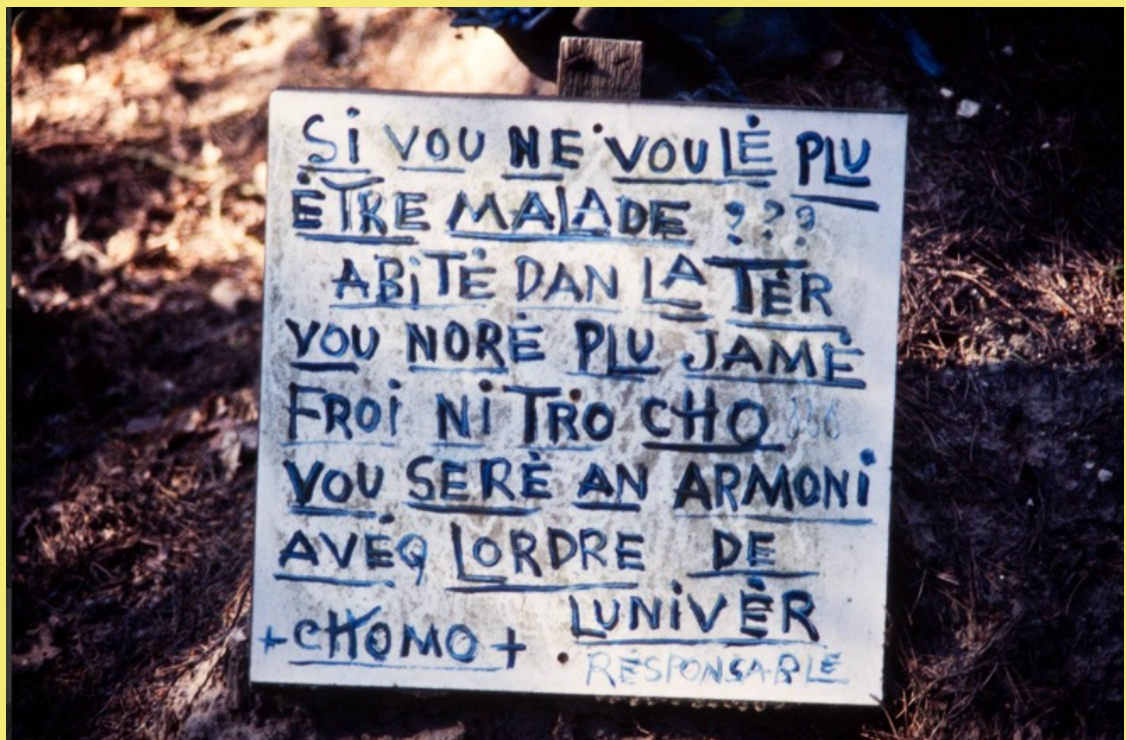 Si VOU NE VOULÉ PLU
ÈTRE MALADE ???
ABiTÉ DAN LA TÈR
VOU NORÉ PLU JAMÉ
FROi Ni TRO CHO
VOU SERÉ AN ARMONi
AVÉQ LORDRE DE
LUNiVÈR
+ CHOMO +
RÉSPONSABLE